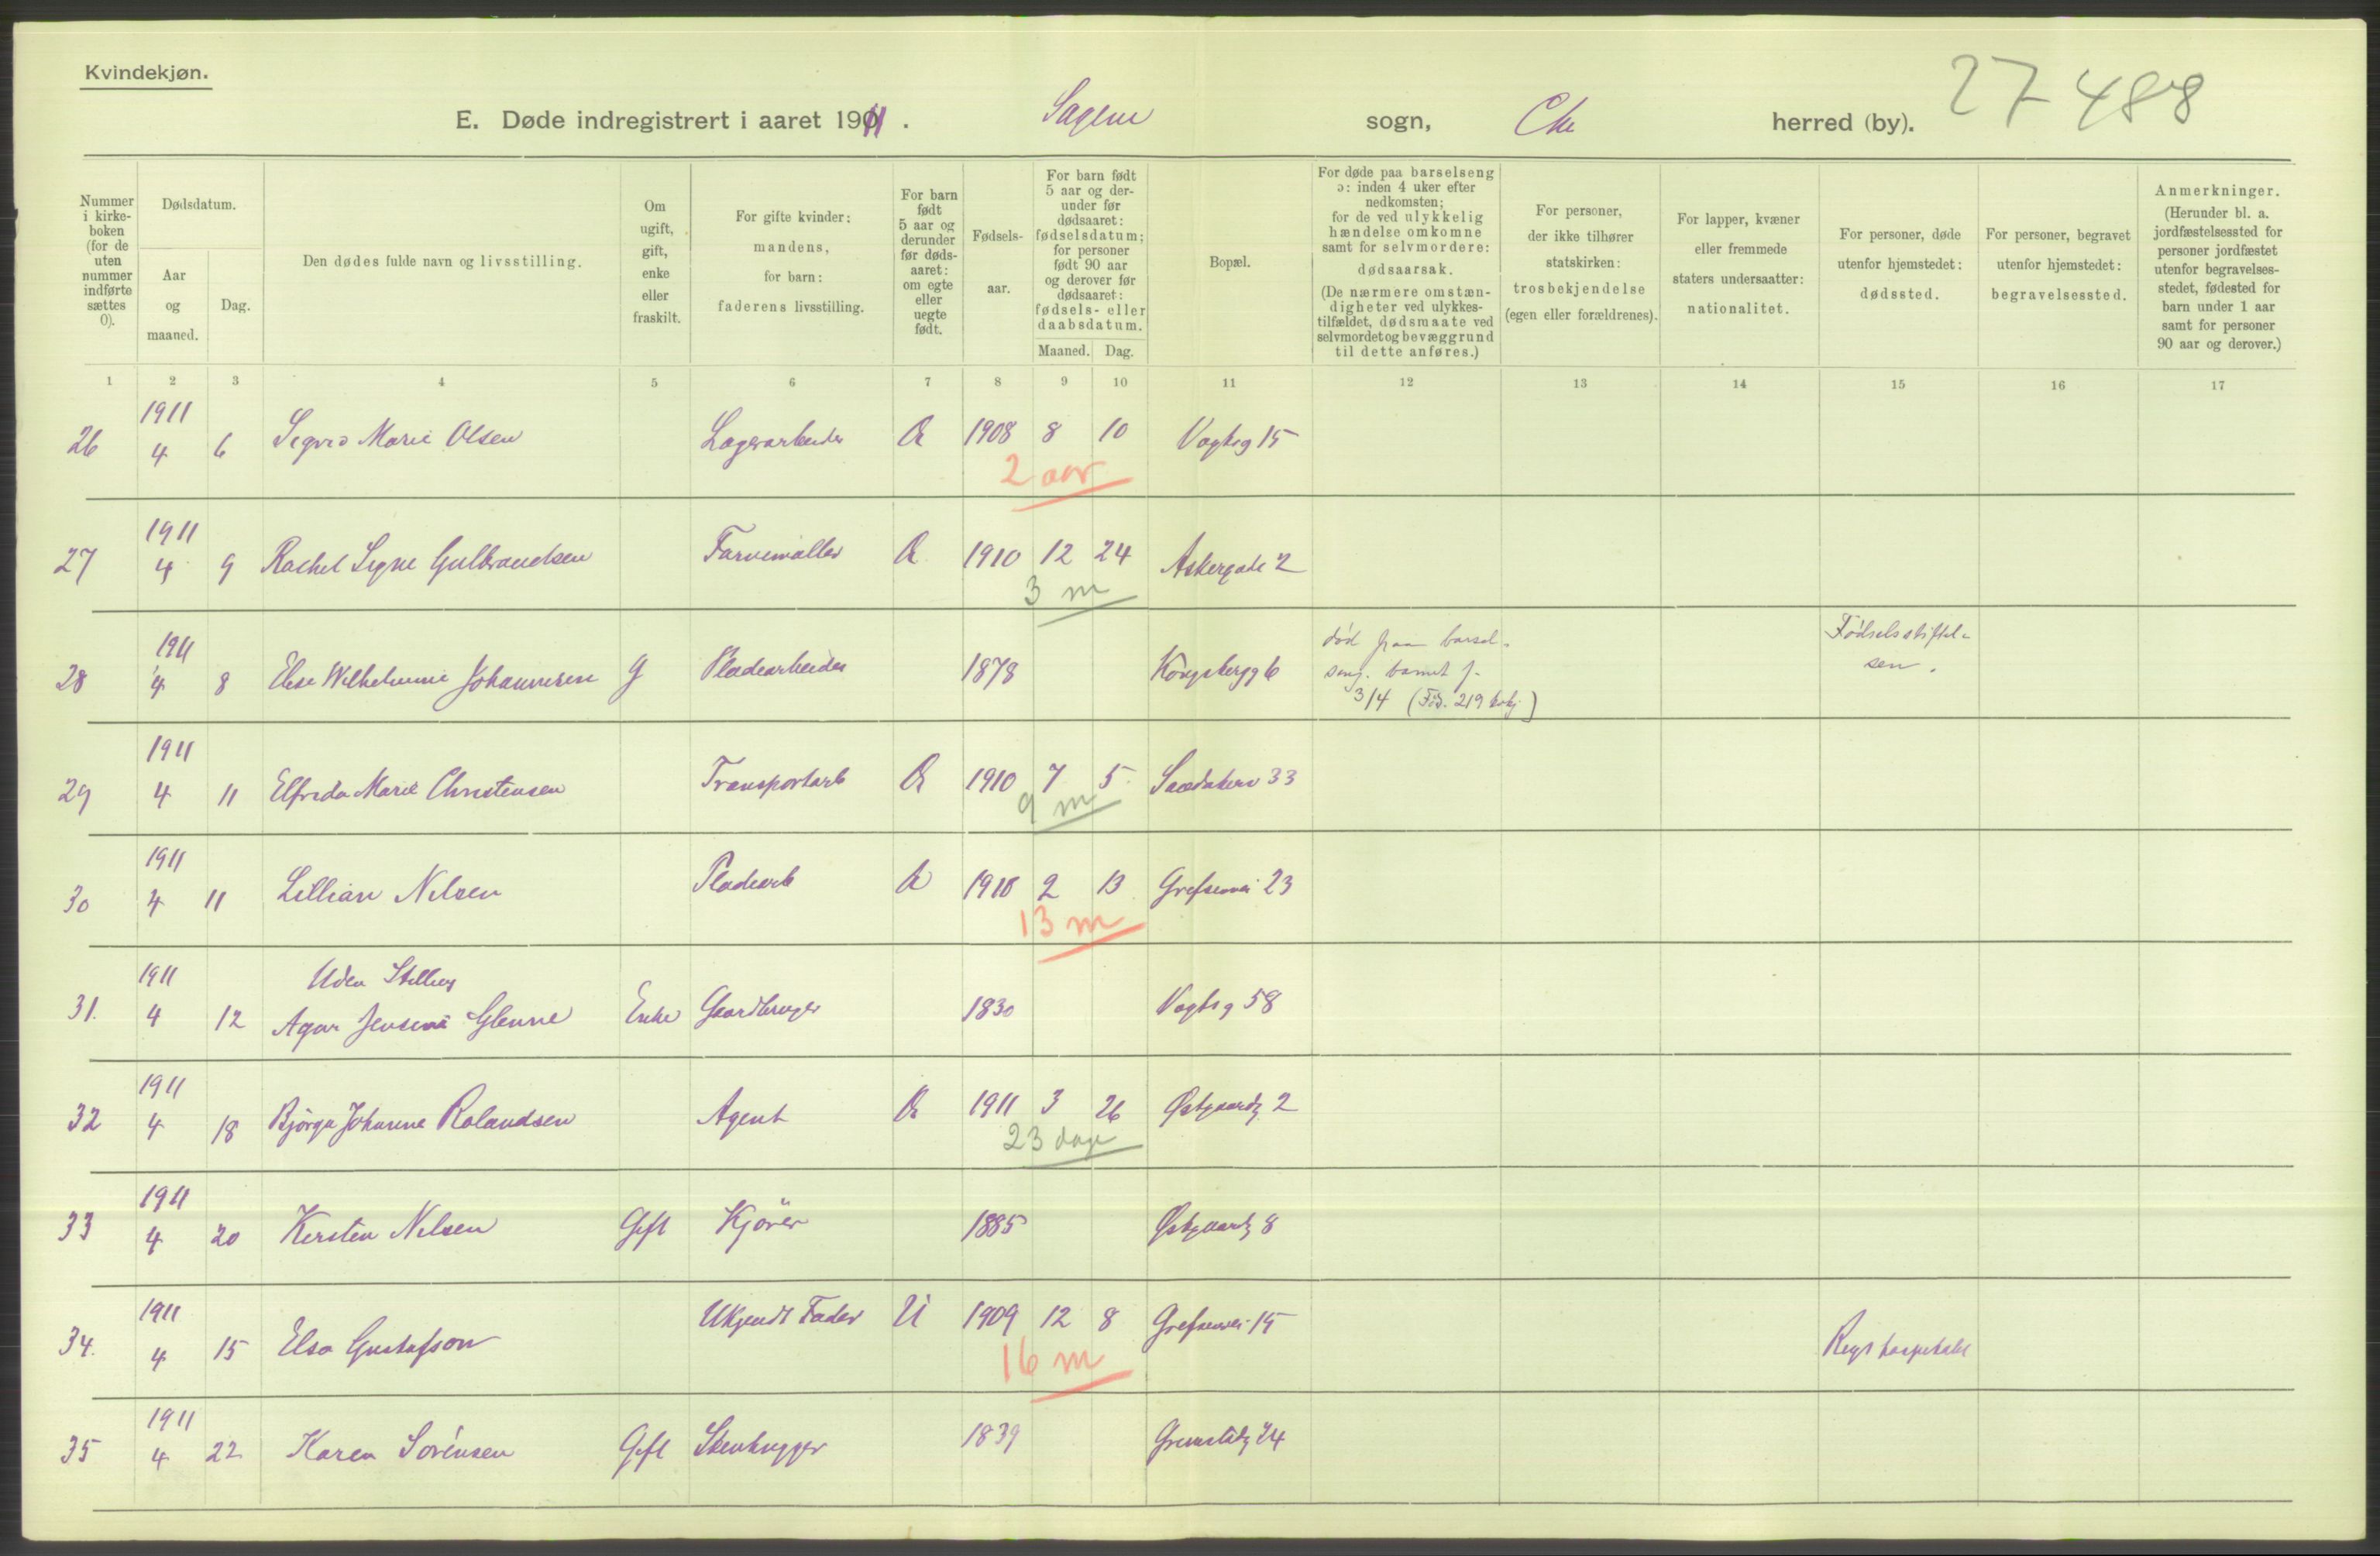 Kvindekjøn.
E. Døde indregistrert i aaret 1911. Sagene sogn, Chr herred (by). 27 488
Nummer i kirke-boken (for de uten nummer indførte sættes 0).
Dødsdatum.
Aar og maaned.
Dag.
Den dødes fulde navn og livsstilling.
Om ugift, gift, enke eller fraskilt.
For gifte kvinder: mandens, for barn: faderens livsstilling.
For barn født 5 aar og derunder før døds-aaret: om egte eller uegte født.
Fødsels-aar.
For barn født 5 aar og der-under før dødsaaret: fødselsdatum; for personer født 90 aar og derover før dødsaaret: fødsels- eller daabsdatum.
Maaned. Dag.
Bopæl.
For døde paa barselseng ɔ: inden 4 uker efter nedkomsten; for de ved ulykkelig hændelse omkomne samt for selvmordere: dødsaarsak. (De nærmere omstæn-digheter ved ulykkes-tilfældet, dødsmaate ved selvmordet og bevæggrund til dette anføres.)
For personer, der ikke tilhører statskirken: trosbekjendelse (egen eller forældrenes).
For lapper, kvæner eller fremmede staters undersaatter: nationalitet.
For personer, døde utenfor hjemstedet: dødssted.
For personer, begravet utenfor hjemstedet: begravelsessted.
Anmerkninger. (Herunder bl. a. jordfæstelsessted for personer jordfæstet utenfor begravelses-stedet, fødested for barn under 1 aar samt for personer 90 aar og derover.)
1 2 3 4 5 6 7 8 9 10 11 12 13 14 15 16 17
1911
26 4 6 Sigrid Marie Olsen Lagerarbeider Æ 1908 8 10 Vogtsg 15
2 aar
1911
27 4 9 Rachel Signe Gulbrandsen Farvemøller Æ 1910 12 24 Askergade 2
3 m
1911
28 4 8 Elise Wilhelmine Johannesen G Pladearbeider 1878 Kongsbergg 6
død paa barsel-
seng. barnet f.
3/4
Fødselsstiftel-
sen.
1911
29 4 11 Elfrida Marie Christensen Transportarb Æ 1910 7 5 33
9 m
1911
30 4 11 Lillian Nilsen Pladearb Æ 1910 2 13 Grefsenvei 23
13 m
1911
Uden Stilling
31. 4 12 Glenne Enke Gaardbruger 1830 Vogtsg 58
1911
32 4 18 Bjørga Johanne Rolandsen Agent Æ 1911 3 26 Østgaardg 2
23 dage
1911
33 4 20 Kirsten Nilsen Gift Kjører 1885 Østgaardg 8
1911
34. 4 15 Elsa Gustafson Ukjendt Fader U 1909 12 8 Grefsenvei 15
16 m
Rigshospitalet
1911
35 4 22 Karen Sörensen Gift Stenhugger 1839 24